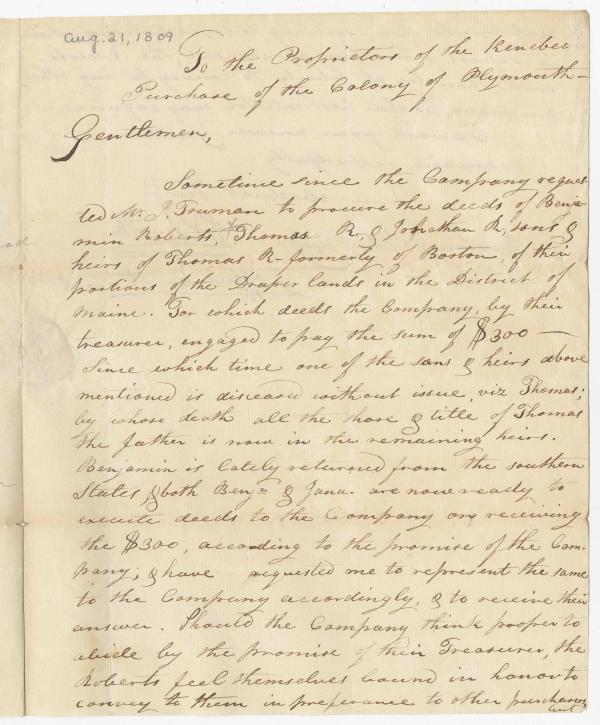 Aug. 21, 1809
To the Proprietors of the Kenebec
Purchase of the Colony of Plymouth-
Gentlemen,
Sometime since the Company reques
ted Mr. J. Truman to procure the deeds of Benja
min Roberts, Thomas R. & Jonathan R, sons &
heirs of Thomas R- formerly of Boston, of their
portions of the Draper lands in the District of
Maine. For which deeds the Company, by their
treasurer, engaged to pay the sum of $300 —
Since which time one of the sons & heirs above
mentioned is diseased without issue, viz Thomas;
by whose death all the share & title of Thomas
the father is now in the remaining heirs.
Benjamin is lately returned from the southern
States, & both Benjn & Jona. are now ready to
execute deeds to the Company on receiving
the $300, according to the promise of the Com-
pany; & have requested me to represent the same
to the Company accordingly, & to receive their
answer. Should the Company think proper to
abide by the promise of their Treasurer, the
Roberts feel themselves bound in honor to
convey to them in preferance to other purchasers
but